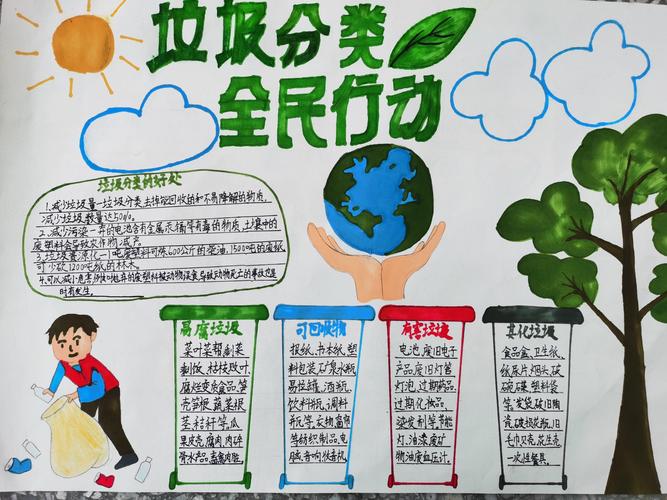 垃圾分类
全民行动
垃圾分类的好处
1.减少垃圾量—垃圾分类,去掉能回收的和不易降解的物质,
减少垃圾数量达50%.
2.减少污染—弃的电池含有金属汞、镉等有毒的物质,土壤中的
废塑料会导致农作物减产
3.垃圾资源化—1吨废塑料可炼600公斤的柴油,1500吨的废纸
可少砍1200吨纸的林木
4.可以减小危害,例如抛弃的废塑料被动物误食,导致动物死亡的事故也是
时有发生.
易腐垃圾
菜叶菜帮剩菜
剩饭、枯枝败叶、
腐烂变质食品,笋
壳笋根,蔬菜根
茎,秸秆等,瓜
果皮壳,腐肉,肉碎
骨水产品,畜禽内脏.
可回收物
报纸,书本纸,塑
料包装,矿泉水瓶
易拉罐、酒瓶,
饮料瓶,调料
瓶等,衣物,窗帘
等纺织制品,电
脑,音响,收音机
有害垃圾
电池,废旧电子
产品,废旧灯管
灯泡,过期药品,
过期化妆品,
染发剂等,节能
灯.油漆,废矿
物油,废血压计.
其他垃圾
食品盒,卫生纸,
纸尿片,烟头,破
碗碟,塑料袋
等,发袋,破旧陶
瓷,破损花瓶,旧
毛巾,贝壳,花生壳
一次性餐具.